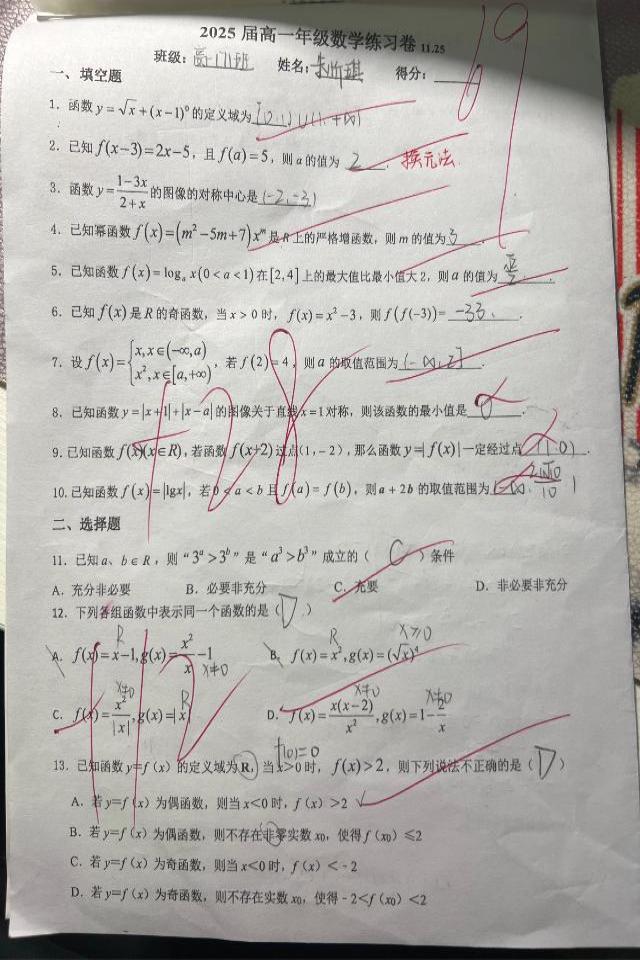 2025 届高一年级数学练习卷 11.25
班级: 高一(1)班 姓名: 得分: 69
一、填空题
1. 函数 y = √x + (x−1)⁰ 的定义域为 [0,1)∪(1,+∞)
2. 已知 f(x−3)=2x−5，且 f(a)=5，则 a 的值为 2 . 换元法.
3. 函数 y = (1−3x)/(2+x) 的图像的对称中心是 (−2,−3)
4. 已知幂函数 f(x)=(m²−5m+7)xᵐ 是 R 上的严格增函数，则 m 的值为 3 .
5. 已知函数 f(x)=logₐ x(0<a<1) 在 [2,4] 上的最大值比最小值大 2，则 a 的值为 √2/2 .
6. 已知 f(x) 是 R 的奇函数，当 x>0 时，f(x)=x²−3，则 f(f(−3))= −33 .
7. 设 f(x)={x, x∈(−∞,a) x², x∈[a,+∞)，若 f(2)=4，则 a 的取值范围为 (−∞,2] .
8. 已知函数 y=|x+1|+|x−a| 的图像关于直线 x=1 对称，则该函数的最小值是 .
9. 已知函数 f(x)(x∈R)，若函数 f(x+2) 过点(1，−2)，那么函数 y=|f(x)| 一定经过点 (1,0) .
10. 已知函数 f(x)=|lgx|，若 0<a<b 且 f(a)=f(b)，则 a+2b 的取值范围为
+28
二、选择题
11. 已知 a、b∈R，则 “3ᵃ>3ᵇ” 是 “a³>b³” 成立的（ C ）条件
A. 充分非必要 B. 必要非充分 C. 充要 D. 非必要非充分
12. 下列各组函数中表示同一个函数的是（ D ）
R R x≥0
A. f(x)=x−1, g(x)=x²/x−1 x≠0 B. f(x)=x², g(x)=(√x)⁴
x≠0 R x≠0 x≠0
C. f(x)=x²/|x|, g(x)=|x| D. f(x)=x(x−2)/x², g(x)=1−2/x
+12
f(0)=0
13. 已知函数 y=f（x）的定义域为 R，当 x>0 时，f(x)>2，则下列说法不正确的是（ D ）
A. 若 y=f（x）为偶函数，则当 x<0 时，f（x）>2 √
B. 若 y=f（x）为偶函数，则不存在非零实数 x₀，使得 f（x₀）≤2
C. 若 y=f（x）为奇函数，则当 x<0 时，f（x）<-2
D. 若 y=f（x）为奇函数，则不存在实数 x₀，使得 -2<f（x₀）<2